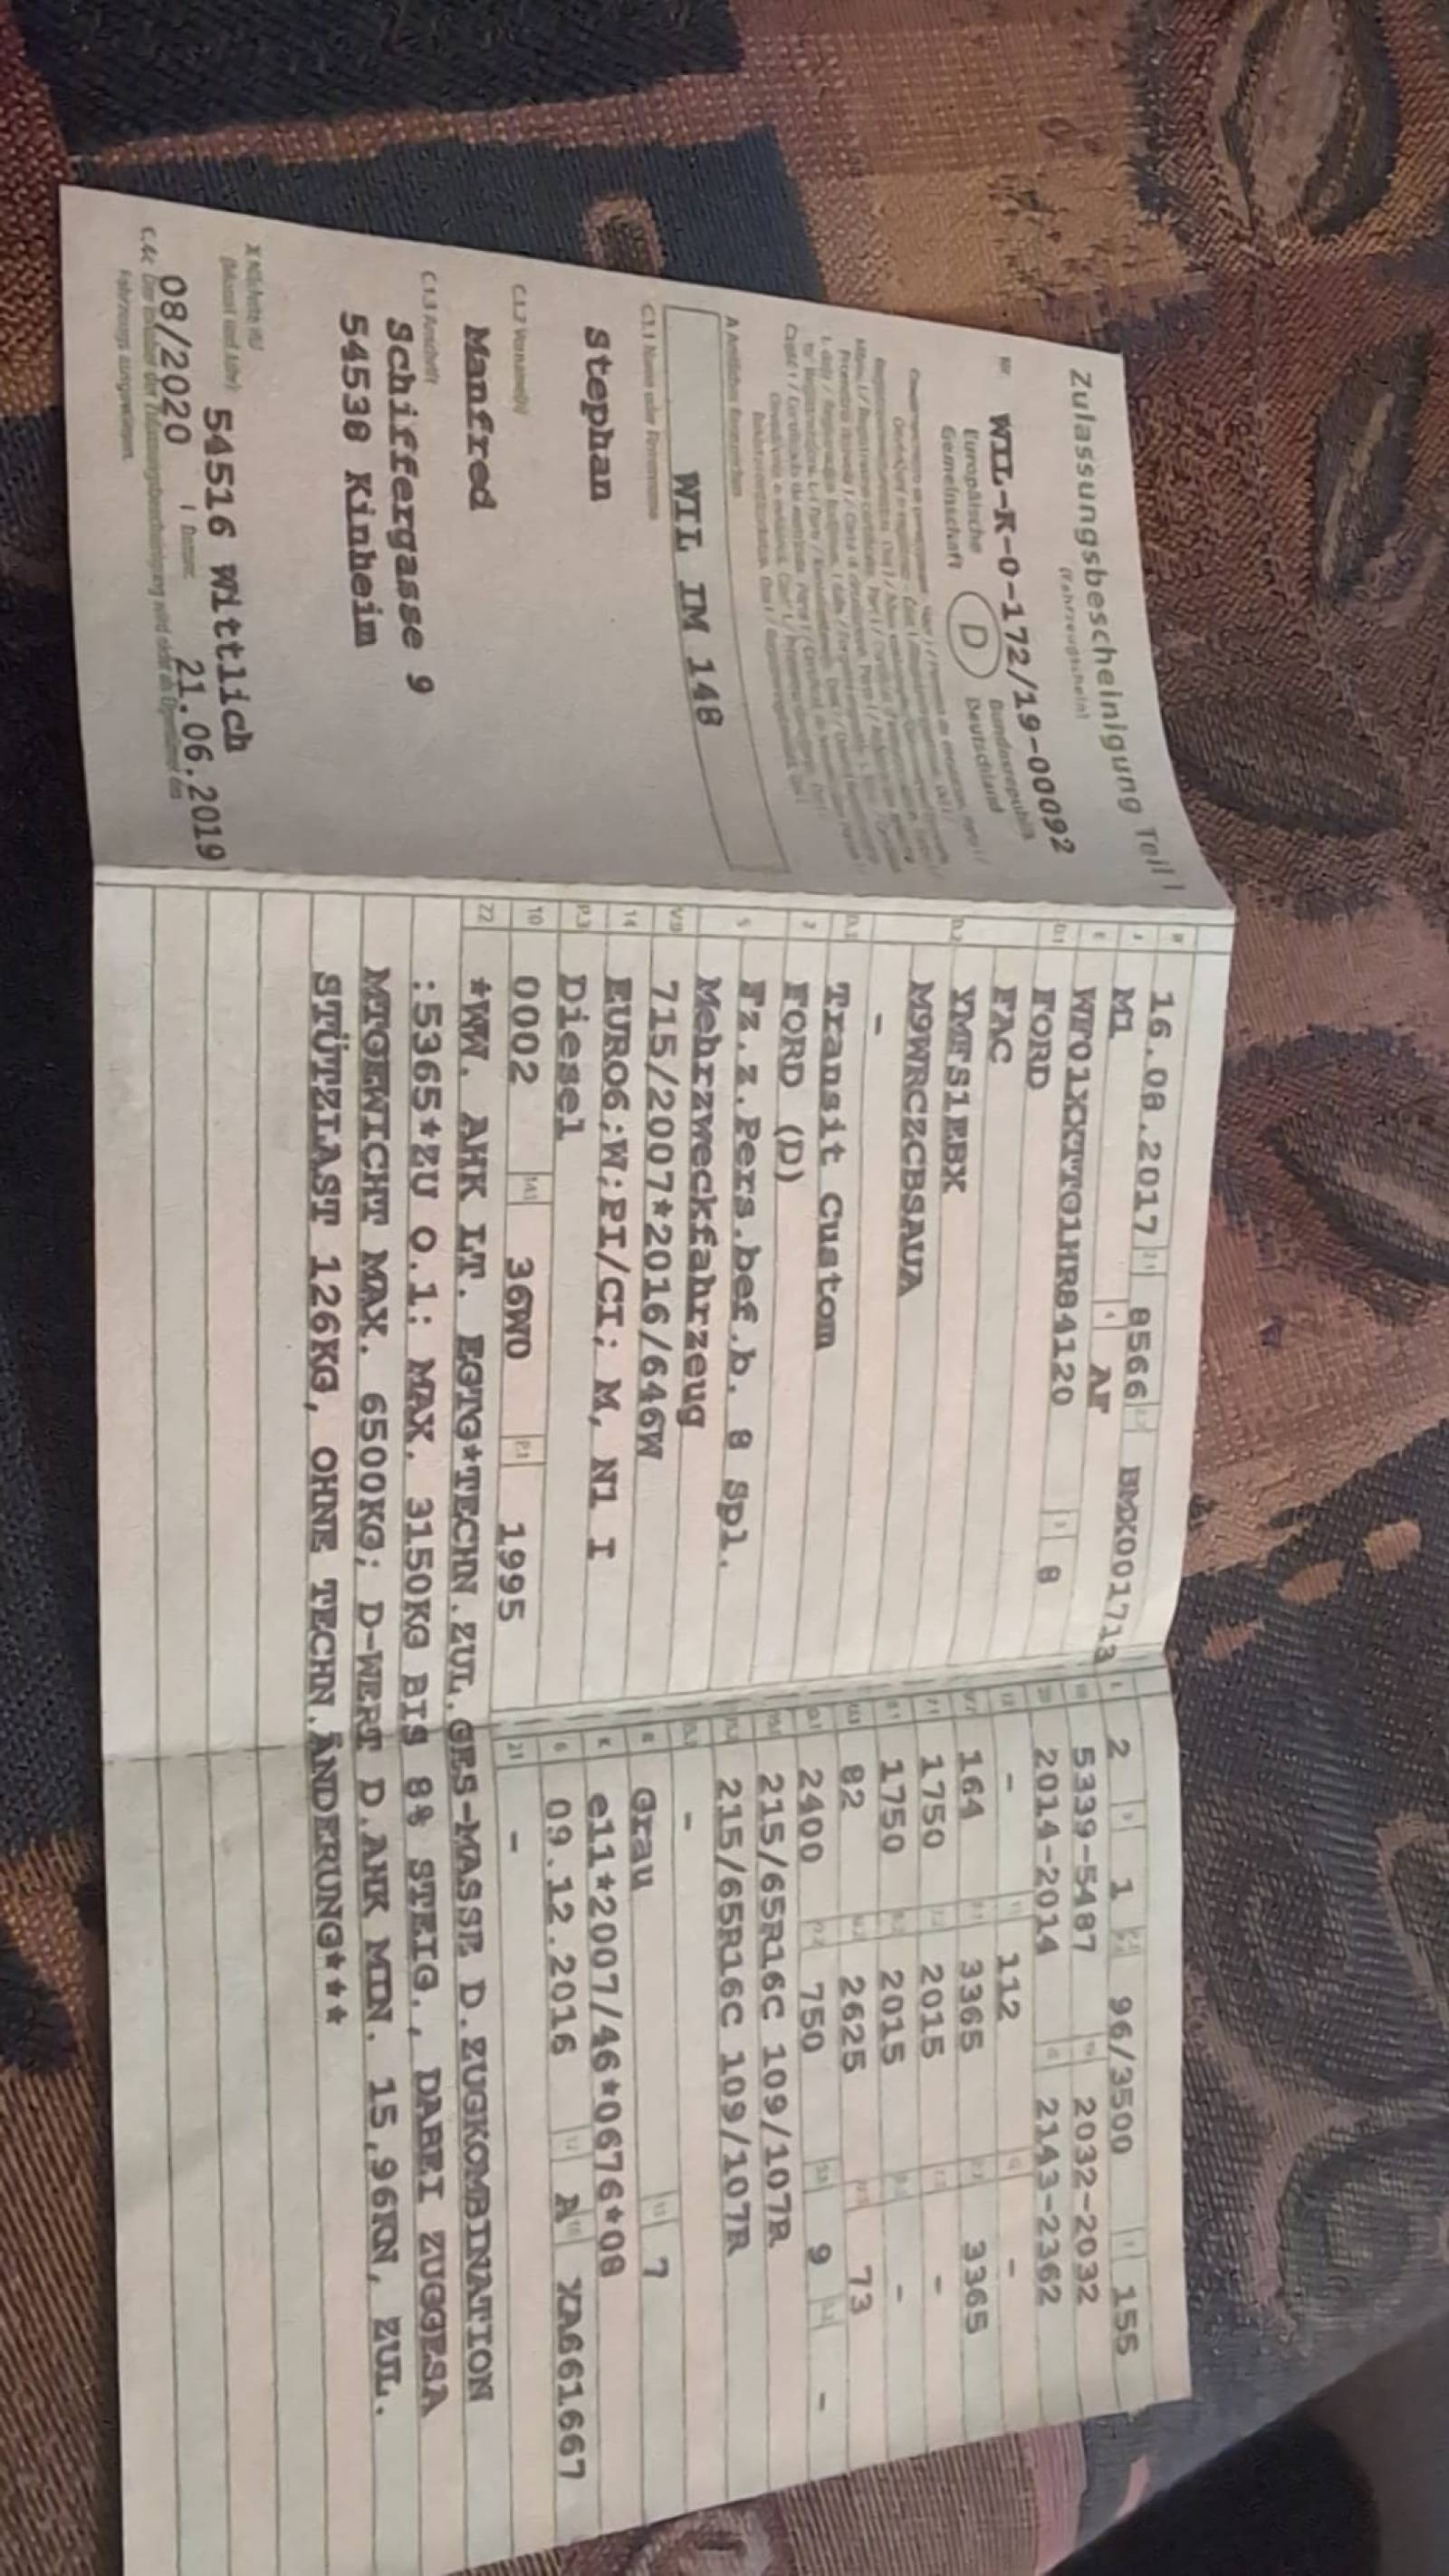 Zulassungsbescheinigung Teil I
(Fahrzeugschein)
Nr. WIL-K-0-172/19-00092
Europäische Gemeinschaft
D
Bundesrepublik Deutschland
A Amtliches Kennzeichen
WIL IM 148
C.1.1 Name oder Firmenname
Stephan
C.1.2 Vorname(n)
Manfred
C.1.3 Anschrift
Schiffergasse 9
54538 Kinheim
Nächste HU
(Monat und Jahr)
54516 Wittlich
08/2020
Datum:
21.06.2019
C.4c Der Inhaber der Zulassungsbescheinigung wird nicht als Eigentümer des
Fahrzeugs ausgewiesen.
B 16.08.2017 2.1 8566 BMX001713
J M1 4 AF
E WF01XXTTG1HR84120 3 8
D.1 FORD
FAC
D.2 YMFS1EBX
M9WRCZCBSAUA
-
D.3 Transit Custom
2 FORD (D)
5 Fz.z.Pers.bef.b. 8 Spl.
Mehrzweckfahrzeug
V.9 715/2007*2016/646W
14 EURO6;W;PI/CI; M, N1 I
P.3 Diesel
10 0002 14.1 36W0 P.1 1995
22 *WW. AHK LT. EGTG*TECHN.ZUL.GES-MASSE D.ZUGKOMBINATION
:5365*ZU O.1: MAX. 3150KG BIS 8% STEIG., DABEI ZUGGESA
MTGEWICHT MAX. 6500KG; D-WERT D.AHK MIN. 15,96KN, ZUL.
STÜTZLAST 126KG, OHNE TECHN.ÄNDERUNG***
L 2 9 1 96/3500 T 155
18 5339-5487 19 2032-2032
20 2014-2014 G 2143-2362
12 - 112 -
V.7 164 F.1 3365 F.2 3365
7.1 1750 7.2 2015 -
8.1 1750 8.2 2015 -
U.1 82 U.2 2625 73
O.1 2400 O.2 750 S.1 9 S.2 -
15.1 215/65R16C 109/107R
15.2 215/65R16C 109/107R
15.3 -
R Grau 11 7
K e11*2007/46*0676*08
6 09.12.2016 17 A 16 XA661667
21 -